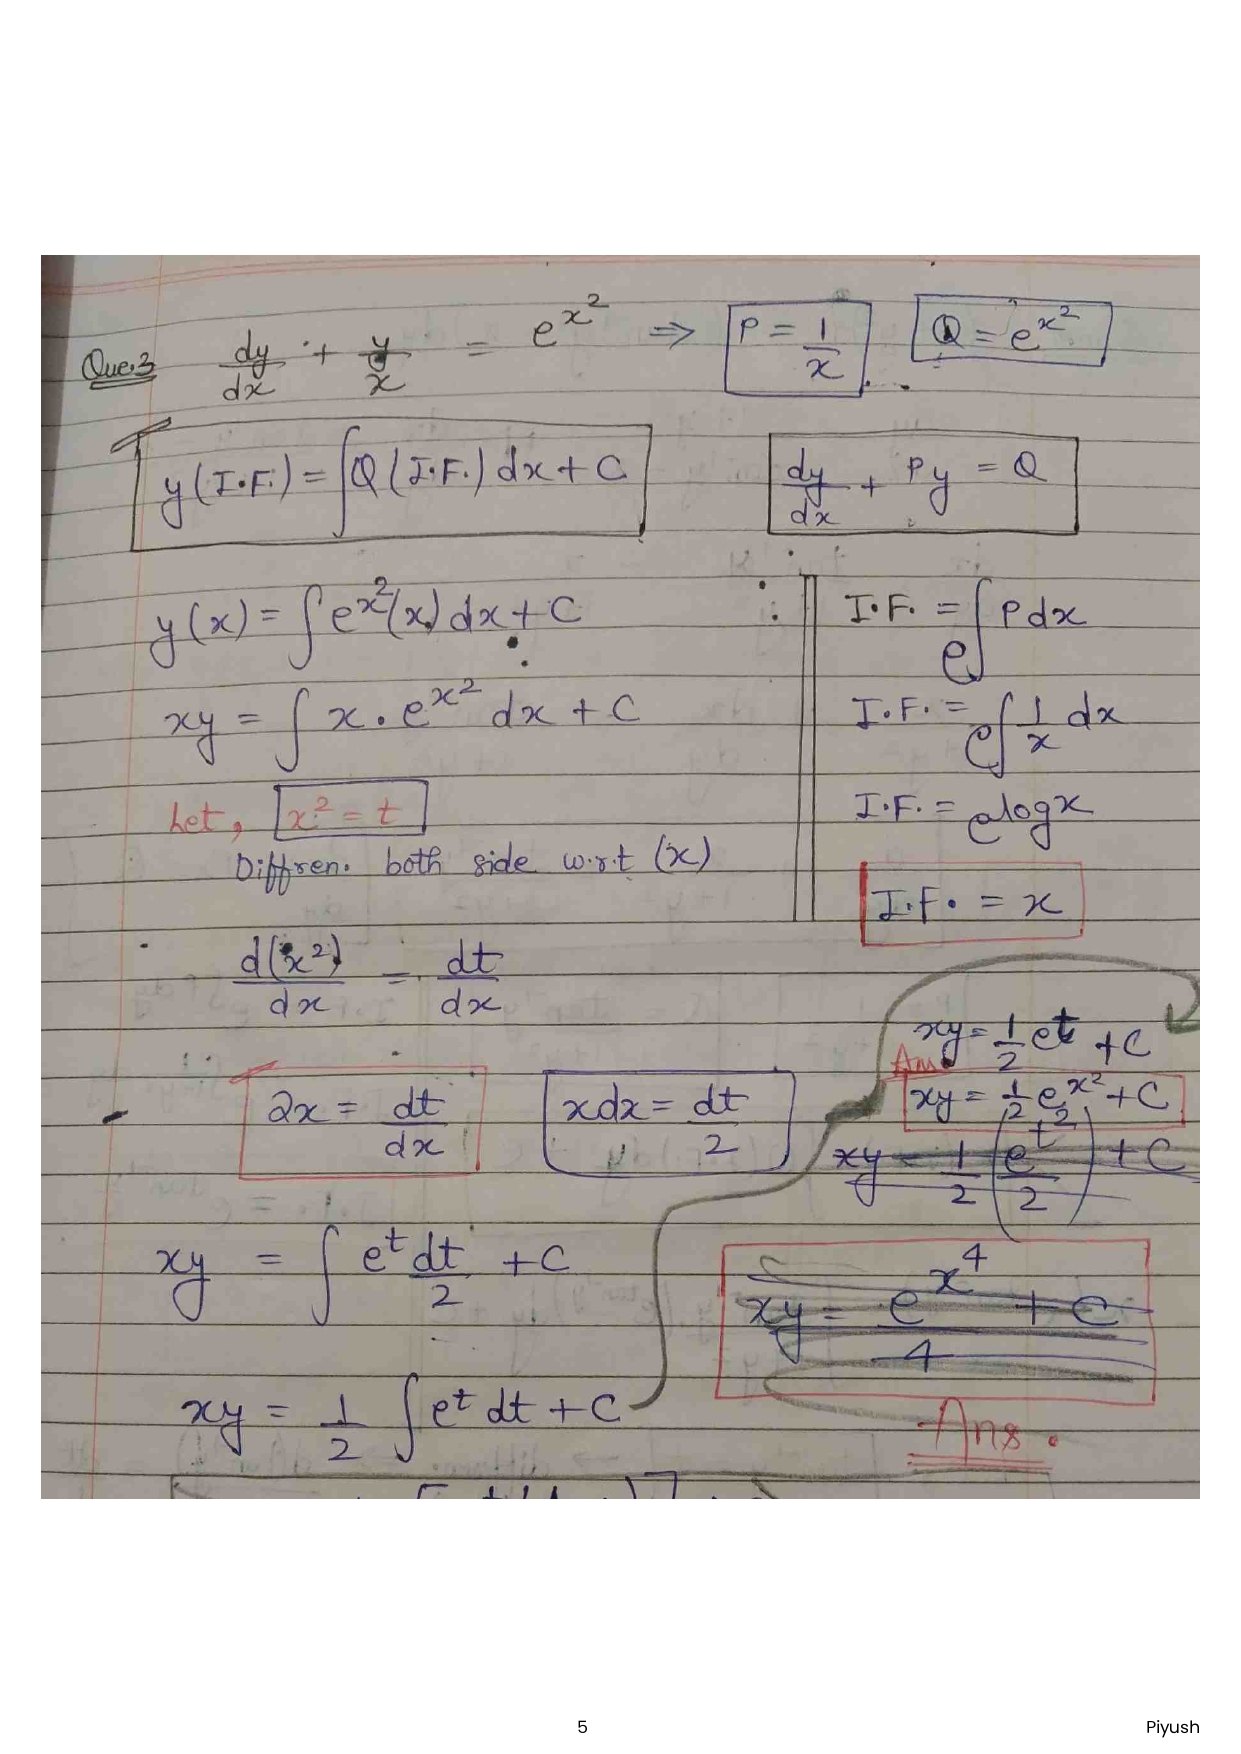 Que.3 dy/dx + y/x = e^x^2 ⇒ P = 1/x Q = e^x^2
y(I.F.) = ∫Q(I.F.) dx + C dy/dx + Py = Q
y(x) = ∫e^x^2(x) dx + C
xy = ∫ x . e^x^2 dx + C
Let, x^2 = t
Diffren. both side w.r.t (x)
d(x^2)/dx = dt/dx
2x = dt/dx xdx = dt/2
xy = ∫ e^t dt/2 + C
xy = 1/2 ∫e^t dt + C
∴ I.F. = e^∫Pdx
I.F. = e^∫1/x dx
I.F. = e^logx
I.F. = x
xy = 1/2 e^t + C
Ans
xy = 1/2 e^x^2 + C
xy = 1/2 (e^t^2/2) + C
xy = e^x^4/4 + C
Ans.
5
Piyush